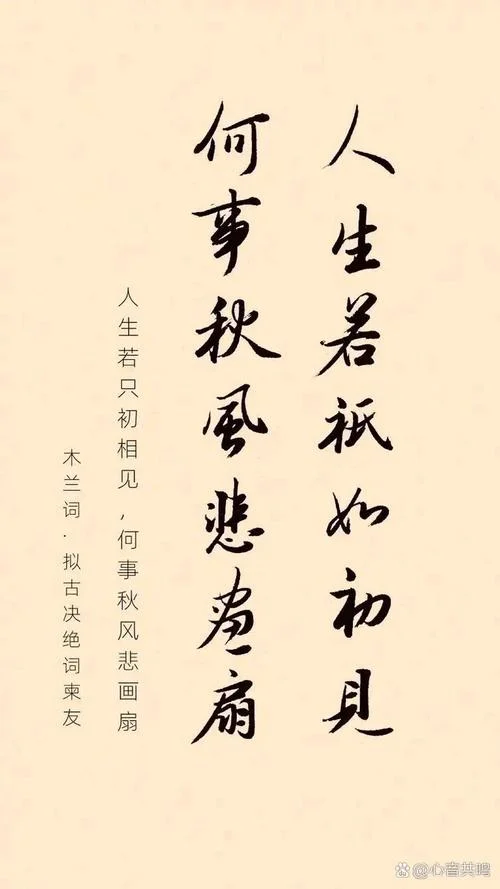 人生若祇如初見
何事秋風悲畫扇
人生若只初相见,何事秋风悲画扇
木兰词·拟古决绝词柬友
心音共鸣